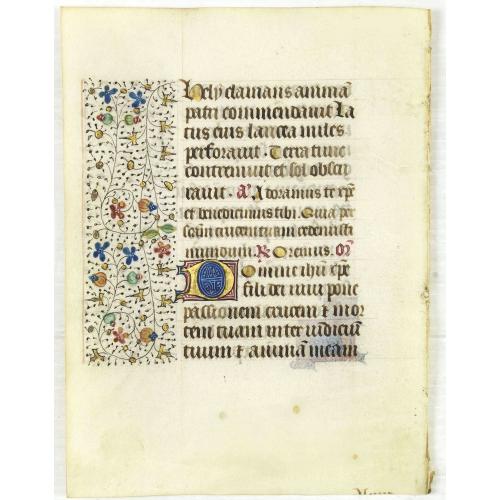 hely clamans animā
patri commendavit La
tus eius lancea miles
perforavit. Terra tunc
contremuit et sol obscu
ravit. a. Adoramus te xp̄e
et benedicimus tibi. Quia per
crucem tuam redemisti
mundum. R. Oremus. Or̄
Domine ihū xp̄e
fili dei vivi pone
passionem crucem et mor
tem tuam inter iudiciū
tuum et animā meam